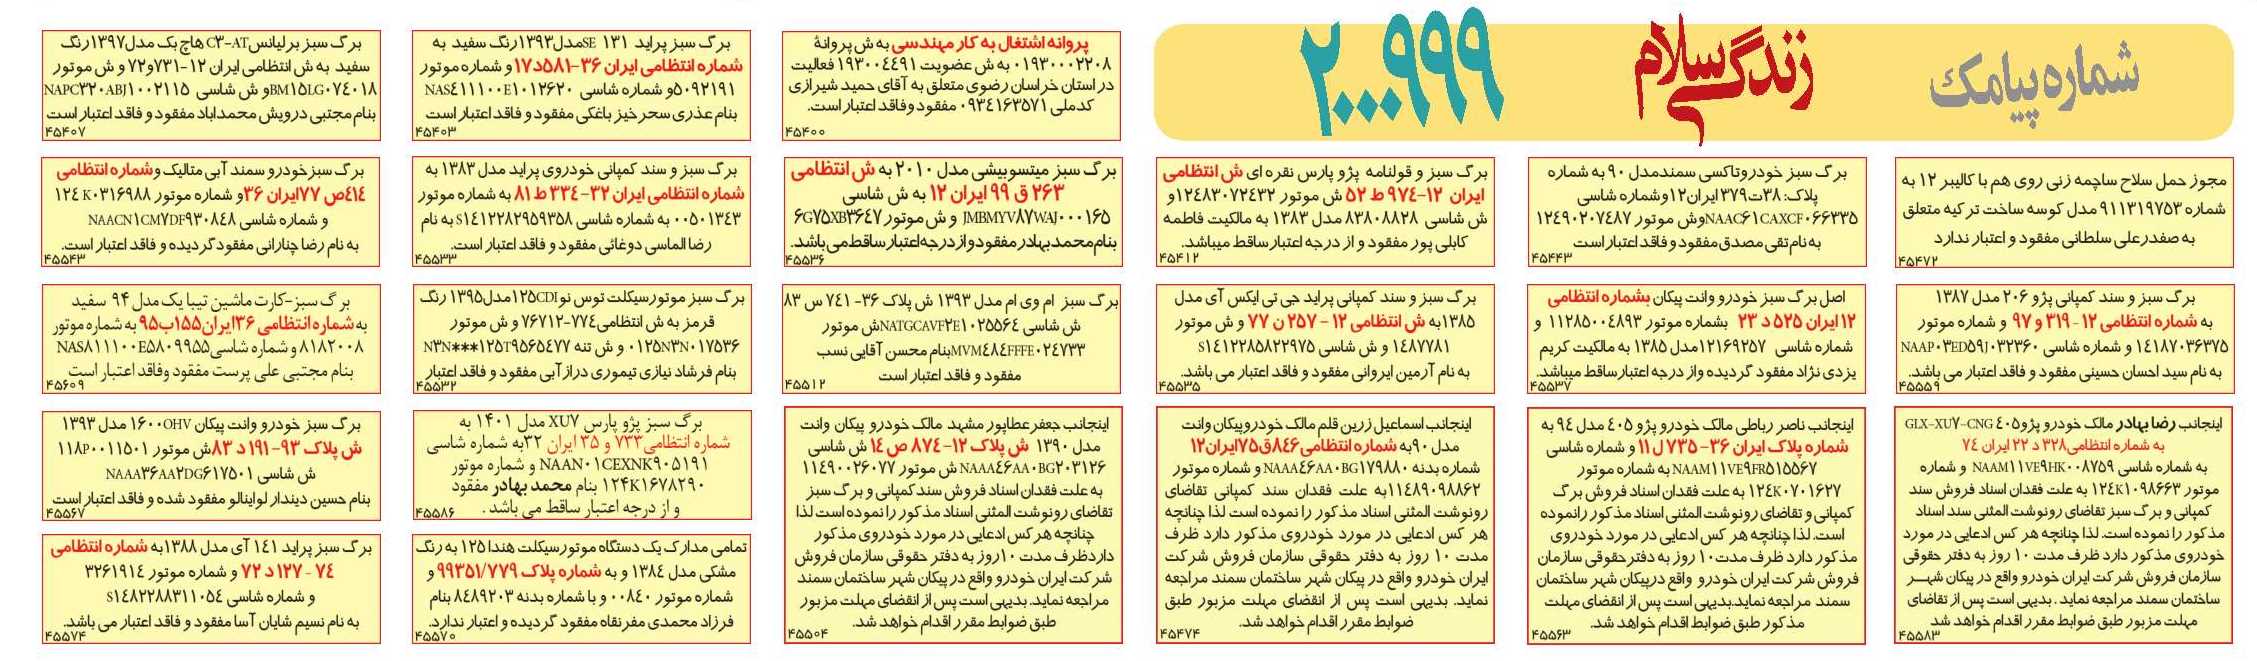 شماره پیامک
زندگی سلام
۲۰۰۰۹۹۹
پروانه اشتغال به کار مهندسی به ش پروانهٔ
۰۱۹۳۰۰۰۲۲۰۸ به ش عضویت ۱۹۳۰۰۴۴۹۱ فعالیت
در استان خراسان رضوی متعلق به آقای حمید شیرازی
کدملی ۰۹۳۴۱۶۳۵۷۱ مفقود وفاقد اعتبار است.
۴۵۴۰۰
برگ سبز پراید ۱۳۱ SEمدل۱۳۹۳رنگ سفید به
شماره انتظامی ایران ۳۶-۵۸۱د۱۷ و شماره موتور
۵۰۹۲۱۹۱و شماره شاسی NAS۴۱۱۱۰۰E۱۰۱۲۶۲۰
بنام عذری سحرخیز باغکی مفقود و فاقد اعتبار است
۴۵۴۰۳
برگ سبز برلیانسC۳-AT هاچ بک مدل۱۳۹۷رنگ
سفید به ش انتظامی ایران ۱۲-۷۳۱و۷۲ و ش موتور
BM۱۵LG۰۷۴۰۱۸و ش شاسی NAPC۳۲۰ABJ۱۰۰۲۱۱۵
بنام مجتبی درویش محمداباد مفقود و فاقد اعتبار است
۴۵۴۰۷
مجوز حمل سلاح ساچمه زنی روی هم با کالیبر ۱۲ به
شماره ۹۱۱۳۱۹۷۵۳ مدل کوسه ساخت ترکیه متعلق
به صفدرعلی سلطانی مفقود و اعتبار ندارد
۴۵۴۷۲
برگ سبز خودروتاکسی سمندمدل ۹۰ به شماره
پلاک: ۳۸ت۳۷۹ایران۱۲وشماره شاسی
NAAC۶۱CAXCF۰۶۶۳۳۵وش موتور ۱۲۴۹۰۲۰۷۴۸۷
به نام تقی مصدق مفقود و فاقد اعتبار است
۴۵۴۴۳
برگ سبز و قولنامه پژو پارس نقره ای ش انتظامی
ایران ۱۲-۹۷۴ ط ۵۲ ش موتور ۱۲۴۸۳۰۷۲۴۳۲و
ش شاسی ۸۳۸۰۸۸۲۸ مدل ۱۳۸۳ به مالکیت فاطمه
کابلی پور مفقود و از درجه اعتبار ساقط میباشد.
۴۵۴۱۲
برگ سبز میتسوبیشی مدل ۲۰۱۰ به ش انتظامی
۲۶۳ ق ۹۹ ایران ۱۲ به ش شاسی
JMBMYV۸۷WAJ۰۰۰۱۶۵ و ش موتور ۶G۷۵XB۳۶۴۷
بنام محمدبهادر مفقود واز درجه اعتبار ساقط می باشد.
۴۵۵۳۶
برگ سبز و سند کمپانی خودروی پراید مدل ۱۳۸۳ به
شماره انتظامی ایران ۳۲-۳۳۴ ط ۸۱ به شماره موتور
۰۰۵۰۱۳۴۳ به شماره شاسی S۱۴۱۲۲۸۲۹۵۹۳۵۸ به نام
رضا الماسی دوغائی مفقود و فاقد اعتبار است.
۴۵۵۳۳
برگ سبزخودرو سمند آبی متالیک وشماره انتظامی
۴۱۴ص ۷۷ایران ۳۶و شماره موتور ۱۲۴K۰۳۱۶۹۸۸
و شماره شاسی NAACN۱CM۷DF۹۳۰۸۴۸
به نام رضا چنارانی مفقود گردیده و فاقد اعتبار است.
۴۵۵۴۳
برگ سبز و سند کمپانی پژو ۲۰۶ مدل ۱۳۸۷
به شماره انتظامی ۱۲-۳۱۹ و ۹۷ و شماره موتور
۱۴۱۸۷۰۳۶۳۷۵ و شماره شاسی NAAP۰۳ED۵۹J۰۳۲۳۶۰
به نام سید احسان حسینی مفقود و فاقد اعتبار می باشد.
۴۵۵۵۹
اصل برگ سبز خودرو وانت پیکان بشماره انتظامی
۱۲ ایران ۵۲۵ د ۲۳ بشماره موتور ۱۱۲۸۵۰۰۴۸۹۳ و
شماره شاسی ۱۲۱۶۹۲۵۷مدل ۱۳۸۵ به مالکیت کریم
یزدی نژاد مفقود گردیده واز درجه اعتبارساقط میباشد.
۴۵۵۳۷
برگ سبز و سند کمپانی پراید جی تی ایکس آی مدل
۱۳۸۵به ش انتظامی ۱۲ - ۲۵۷ ن ۷۷ و ش موتور
۱۴۸۷۷۸۱ و ش شاسی S۱۴۱۲۲۸۵۸۲۲۹۷۵
به نام آرمین ایروانی مفقود و فاقد اعتبار می باشد.
۴۵۵۳۵
برگ سبز ام وی ام مدل ۱۳۹۳ ش پلاک ۳۶-۷۴۱ س ۸۳
ش شاسی NATGCAVF۲E۱۰۲۵۵۶۴ش موتور
MVM۴۸۴FFFE۰۲۴۷۳۳بنام محسن آقایی نسب
مفقود و فاقد اعتبار است
۴۵۵۱۲
برگ سبز موتورسیکلت توس نو۱۲۵CDIمدل۱۳۹۵ رنگ
قرمز به ش انتظامی۷۷۴-۷۶۷۱۲ و ش موتور
۰۱۲۵N۳N۰۱۷۵۳۶ و ش تنه N۳N***۱۲۵T۹۵۶۵۴۷۷
بنام فرشاد نیازی تیموری درازآبی مفقود و فاقد اعتبار
۴۵۵۳۲
برگ سبز-کارت ماشین تیبا یک مدل ۹۴ سفید
به شماره انتظامی ۳۶ایران۱۵۵ب۹۵ به شماره موتور
۸۱۸۲۰۰۸ و شماره شاسیNAS۸۱۱۱۰۰E۵۸۰۹۹۵۵
بنام مجتبی علی پرست مفقود وفاقد اعتبار است
۴۵۶۰۹
اینجانب رضا بهادر مالک خودرو پژو ۴۰۵ GLX-XU۷-CNG
به شماره انتظامی۳۲۸ د ۲۲ ایران ۷۴
به شماره شاسی NAAM۱۱VE۹HK۰۰۸۷۵۹ و شماره
موتور ۱۲۴K۱۰۹۸۶۶۳ به علت فقدان اسناد فروش سند
کمپانی و برگ سبز تقاضای رونوشت المثنی سند اسناد
مذکور را نموده است. لذا چنانچه هر کس ادعایی در مورد
خودروی مذکور دارد ظرف مدت ۱۰ روز به دفتر حقوقی
سازمان فروش شرکت ایران خودرو واقع در پیکان شهر
ساختمان سمند مراجعه نماید . بدیهی است پس از تقاضای
مهلت مزبور طبق ضوابط مقرر اقدام خواهد شد
۴۵۵۸۳
اینجانب ناصر رباطی مالک خودرو پژو ۴۰۵ مدل ۹۴ به
شماره پلاک ایران ۳۶-۷۳۵ ل ۱۱ و شماره شاسی
NAAM۱۱VE۹FR۵۱۵۵۶۷ به شماره موتور
۱۲۴K۰۷۰۱۶۲۷ به علت فقدان اسناد فروش برگ
کمپانی و تقاضای رونوشت المثنی اسناد مذکور رانموده
است. لذا چنانچه هر کس ادعایی در مورد خودروی
مذکور دارد ظرف مدت۱۰ روز به دفترحقوقی سازمان
فروش شرکت ایران خودرو واقع درپیکان شهر ساختمان
سمند مراجعه نماید.بدیهی است پس از انقضای مهلت
مذکور طبق ضوابط اقدام خواهد شد.
۴۵۵۶۳
اینجانب اسماعیل زرین قلم مالک خودروپیکان وانت
مدل ۹۰به شماره انتظامی۸۴۶ق۷۵ایران۱۲
شماره بدنه NAAA۴۶AA۰BG۱۷۹۸۸۰ و شماره موتور
۱۱۴۸۹۰۹۸۸۶۲به علت فقدان سند کمپانی تقاضای
رونوشت المثنی اسناد مذکور را نموده است لذا چنانچه
هر کس ادعایی در مورد خودروی مذکور دارد ظرف
مدت ۱۰ روز به دفتر حقوقی سازمان فروش شرکت
ایران خودرو واقع در پیکان شهر ساختمان سمند مراجعه
نماید. بدیهی است پس از انقضای مهلت مزبور طبق
ضوابط مقرر اقدام خواهد شد.
۴۵۴۷۴
اینجانب جعفر عطاپور مشهد مالک خودرو پیکان وانت
مدل ۱۳۹۰ ش پلاک ۱۲-۸۷۴ ص ۱۴ ش شاسی
NAAA۴۶AA۰BG۲۰۳۱۲۶ ش موتور ۱۱۴۹۰۰۲۶۰۷۷
به علت فقدان اسناد فروش سند کمپانی و برگ سبز
تقاضای رونوشت المثنی اسناد مذکور را نموده است لذا
چنانچه هر کس ادعایی در مورد خودروی مذکور
داردظرف مدت ۱۰روز به دفتر حقوقی سازمان فروش
شرکت ایران خودرو واقع در پیکان شهر ساختمان سمند
مراجعه نماید. بدیهی است پس از انقضای مهلت مزبور
طبق ضوابط مقرر اقدام خواهد شد.
۴۵۵۰۴
برگ سبز پژو پارس XU۷ مدل ۱۴۰۱ به
شماره انتظامی۷۳۳ و ۳۵ ایران ۳۲به شماره شاسی
NAAN۰۱CEXNK۹۰۵۱۹۱ و شماره موتور
۱۲۴K۱۶۷۸۲۹۰ بنام محمد بهادر مفقود
و از درجه اعتبار ساقط می باشد .
۴۵۵۸۶
برگ سبز خودرو وانت پیکان ۱۶۰۰OHV مدل ۱۳۹۳
ش پلاک ۹۳-۱۹۱ د ۸۳ش موتور ۱۱۸P۰۰۱۱۵۰۱
ش شاسی NAAA۳۶AA۲DG۶۱۷۵۰۱
بنام حسین دیندار لواینالو مفقود شده و فاقد اعتبار است
۴۵۵۶۷
تمامی مدارک یک دستگاه موتورسیکلت هندا ۱۲۵ به رنگ
مشکی مدل ۱۳۸۴ و به شماره پلاک ۹۹۳۵۱/۷۷۹ و
شماره موتور ۰۰۸۴۰ و با شماره بدنه ۸۴۸۹۲۰۳ بنام
فرزاد محمدی مفرنقاه مفقود گردیده و اعتبار ندارد.
۴۵۵۷۰
برگ سبز پراید ۱۴۱ آی مدل ۱۳۸۸به شماره انتظامی
۷۴ - ۱۲۷ د ۷۲ و شماره موتور ۳۲۶۱۹۱۴
و شماره شاسی S۱۴۸۲۲۸۸۳۱۱۰۵۴
به نام نسیم شایان آسا مفقود و فاقد اعتبار می باشد.
۴۵۵۷۴